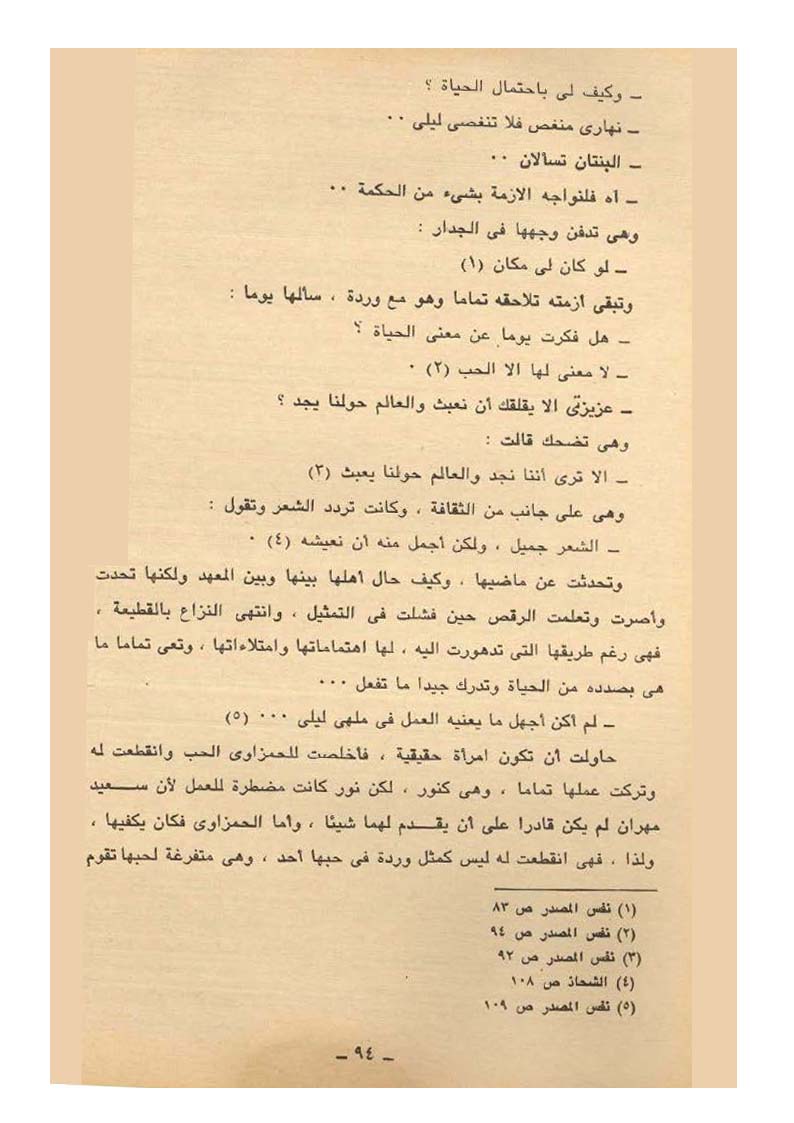 ـ وكيف لى باحتمال الحياة ؟
ـ نهارى منغص فلا تنغصى ليلى ٠٠
ـ البنتان تسألان ٠٠
ـ آه فلنواجه الازمة بشىء من الحكمة ٠٠
وهى تدفن وجهها فى الجدار :
ـ لو كان لى مكان (١)
وتبقى أزمته تلاحقه تماما وهو مع وردة ، سألها يوما :
ـ هل فكرت يوما عن معنى الحياة ؟
ـ لا معنى لها الا الحب (٢) ٠
ـ عزيزتى الا يقلقك أن نعبث والعالم حولنا يجد ؟
وهى تضحك قالت :
ـ الا ترى أننا نجد والعالم حولنا يعبث (٣)
وهى على جانب من الثقافة ، وكانت تردد الشعر وتقول :
ـ الشعر جميل ، ولكن أجمل منه أن نعيشه (٤) ٠
وتحدثت عن ماضيها ، وكيف حال أهلها بينها وبين المعهد ولكنها تحدت
وأصرت وتعلمت الرقص حين فشلت فى التمثيل ، وانتهى النزاع بالقطيعة ،
فهى رغم طريقها التى تدهورت اليه ، لها اهتماماتها وامتلاءاتها ، وتعى تماما ما
هى بصدده من الحياة وتدرك جيدا ما تفعل ٠٠٠
ـ لم أكن أجهل ما يعنيه العمل فى ملهى ليلى ٠٠٠ (٥)
حاولت أن تكون امرأة حقيقية ، فأخلصت للحمزاوى الحب وانقطعت له
وتركت عملها تماما ، وهى كنور ، لكن نور كانت مضطرة للعمل لأن ســعيد
مهران لم يكن قادرا على أن يقــدم لهما شيئا ، وأما الحمزاوى فكان يكفيها ،
ولذا ، فهى انقطعت له ليس كمثل وردة فى حبها أحد ، وهى متفرغة لحبها تقوم
(١) نفس المصدر ص ٨٣
(٢) نفس المصدر ص ٩٤
(٣) نفس المصدر ص ٩٢
(٤) الشحاذ ص ١٠٨
(٥) نفس المصدر ص ١٠٩
ـ ٩٤ ـ